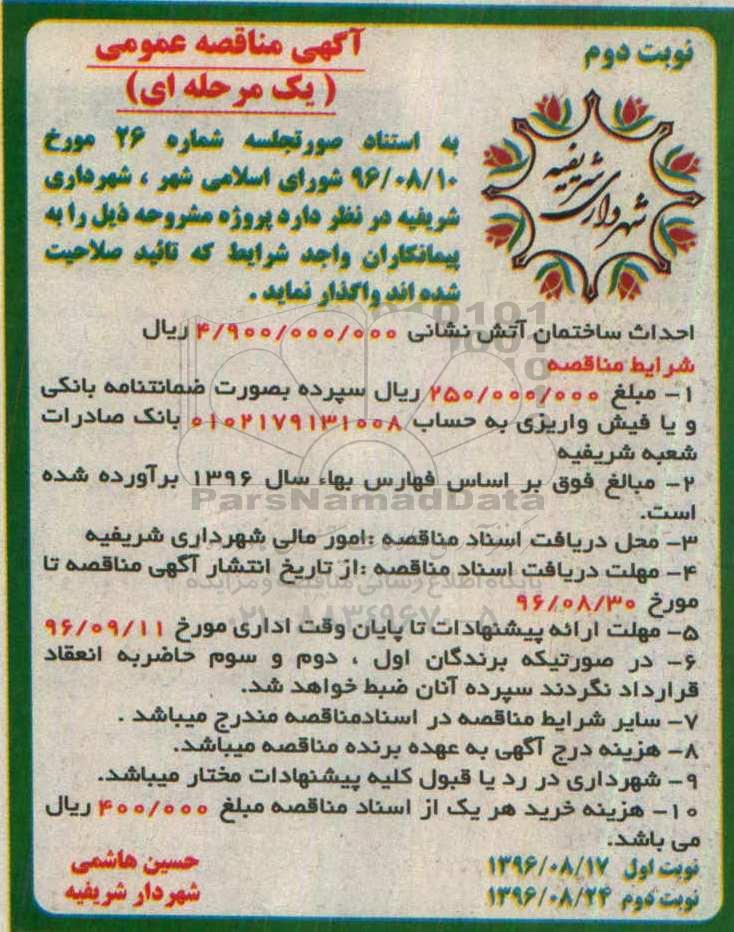 نوبت دوم
آگهی مناقصه عمومی
( یک مرحله ای)
شهرداری شریفیه
به استناد صورتجلسه شماره ۲۶ مورخ
۹۶/۰۸/۱۰ شورای اسلامی شهر ، شهرداری
شریفیه در نظر دارد پروژه مشروحه ذیل را به
پیمانکاران واجد شرایط که تائید صلاحیت
شده اند واگذار نماید .
احداث ساختمان آتش نشانی ۴/۹۰۰/۰۰۰/۰۰۰ ریال
شرایط مناقصه
۱- مبلغ ۲۵۰/۰۰۰/۰۰۰ ریال سپرده بصورت ضمانتنامه بانکی
و یا فیش واریزی به حساب ۰۱۰۲۱۷۹۱۳۱۰۰۸ بانک صادرات
شعبه شریفیه
۲- مبالغ فوق بر اساس فهارس بهاء سال ۱۳۹۶ برآورده شده
است.
ParsNamadData
۳- محل دریافت اسناد مناقصه :امور مالی شهرداری شریفیه
۴- مهلت دریافت اسناد مناقصه :از تاریخ انتشار آگهی مناقصه تا
پایگاه اطلاع رسانی مناقصه و مزایده
مورخ ۹۶/۰۸/۳۰
۰۲۱-۸۸۳۴۹۶۷۰-۵
۵- مهلت ارائه پیشنهادات تا پایان وقت اداری مورخ ۹۶/۰۹/۱۱
۶- در صورتیکه برندگان اول ، دوم و سوم حاضربه انعقاد
قرارداد نگردند سپرده آنان ضبط خواهد شد.
۷- سایر شرایط مناقصه در اسنادمناقصه مندرج میباشد .
۸- هزینه درج آگهی به عهده برنده مناقصه میباشد.
۹- شهرداری در رد یا قبول کلیه پیشنهادات مختار میباشد.
۱۰- هزینه خرید هر یک از اسناد مناقصه مبلغ ۴۰۰/۰۰۰ ریال
می باشد.
نوبت اول ۱۳۹۶/۰۸/۱۷
نوبت دوم ۱۳۹۶/۰۸/۲۴
حسین هاشمی
شهردار شریفیه